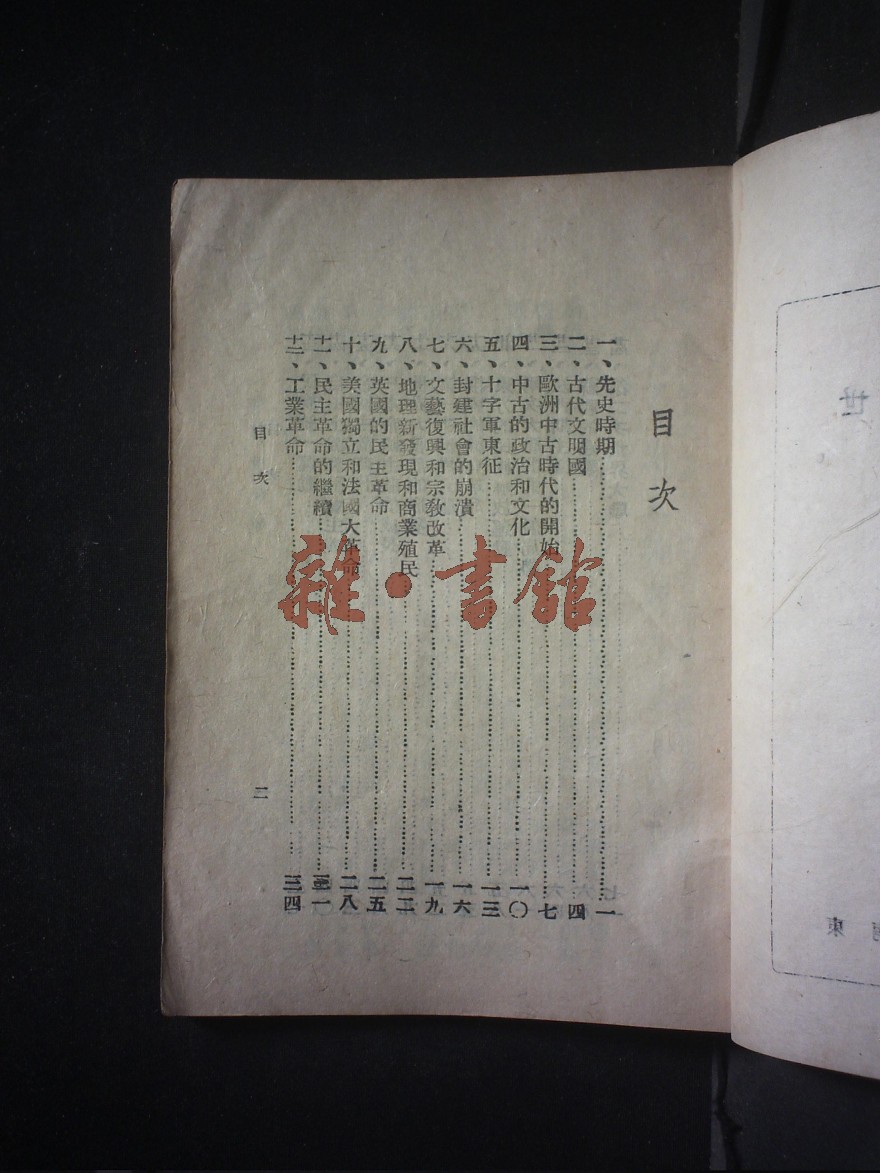 目次
一、先史時期……一
二、古代文明國……四
三、歐洲中古時代的開始……七
四、中古的政治和文化……一〇
五、十字軍東征……一三
六、封建社會的崩潰……一六
七、文藝復興和宗教改革……一九
八、地理新發現和商業殖民……二二
九、英國的民主革命……二五
十、美國獨立和法國大革命……二八
十一、民主革命的繼續……三一
十二、工業革命……三四
目次
二
雜·書館
世
東